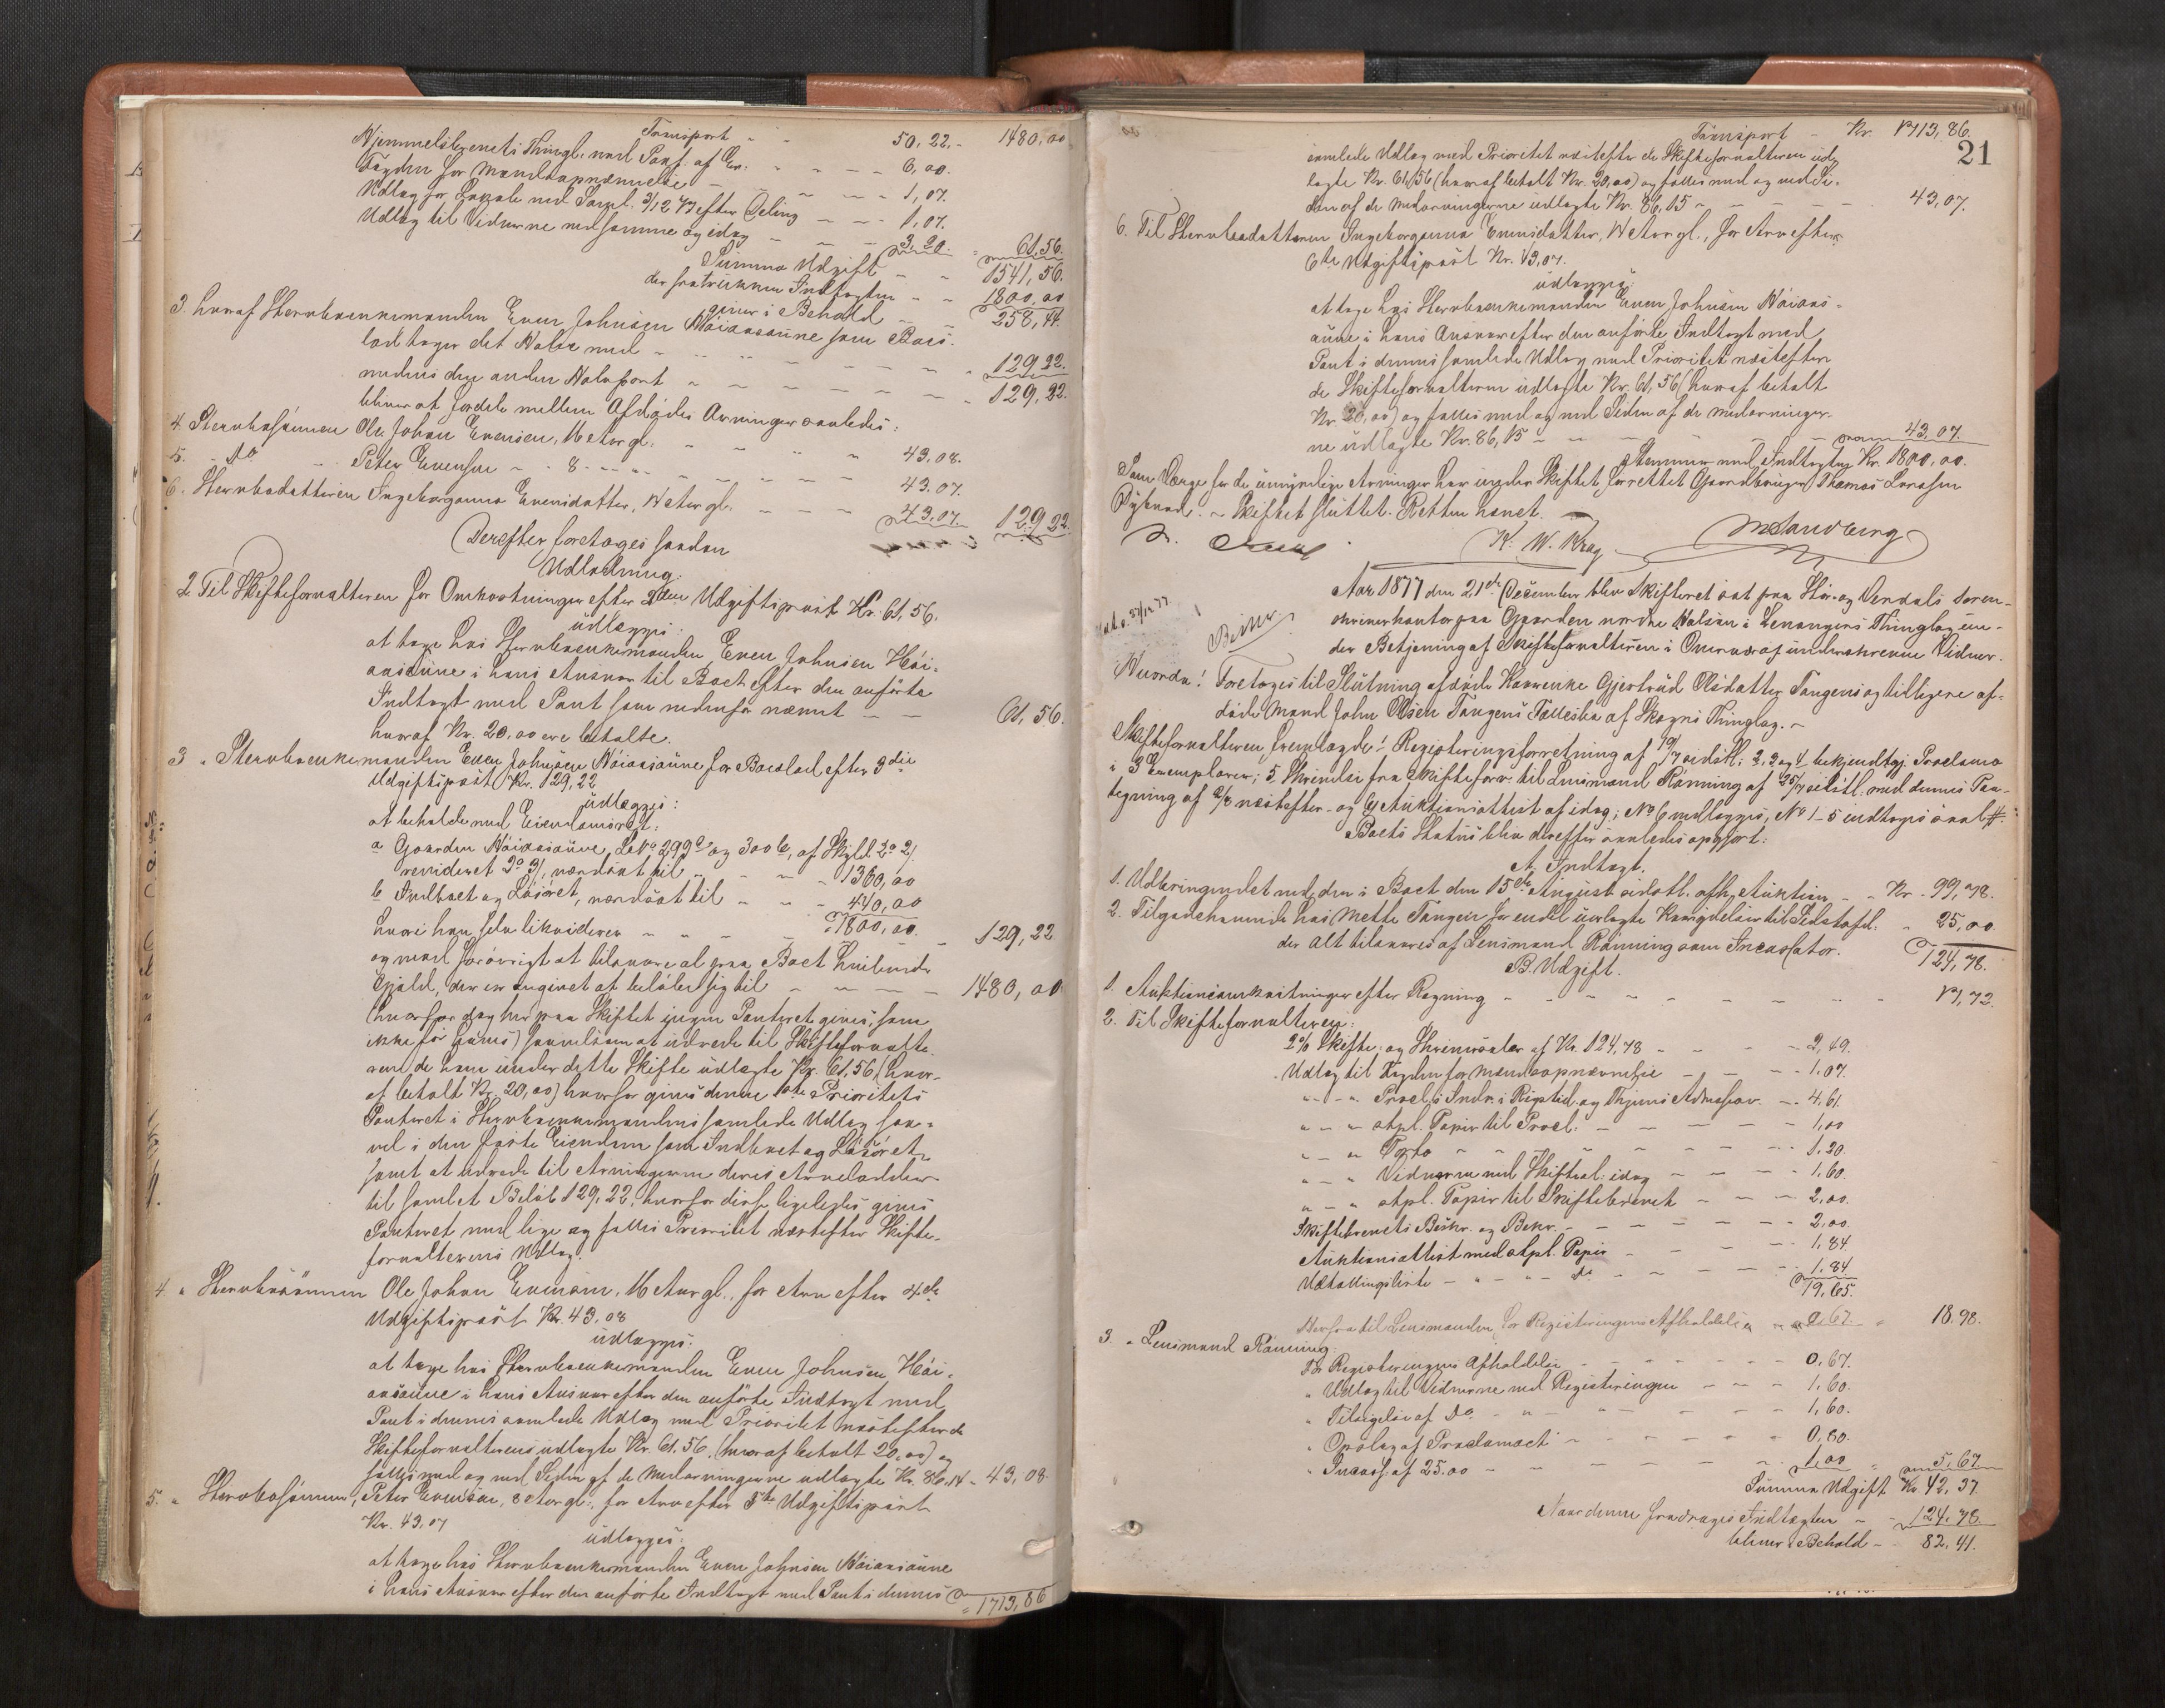 Transport - - 50,22.- 1480,00
Hjemmelsbrevets Thingl. med Pant. af En: - - 6,00.
Fogden for Mandsopnævnelse - - 1,07.
Udlæg for Lokale ved Sampl. 3/12 77 efter Deling - - 1,07.
Udlæg til Vidnerne ved samme og idag - - 3,20. 61,56.
Summa Udgift - - 1541,56.
der fratrukken Indtægten - - 1800,00
giver i Behold - 258,44.
3. hvoraf Stervboenkemanden Even Johnsen Høiaasaune som Boes-
lod tager det Halve med - - 129,22.
medens den anden Halvpart - - 129,22.
bliver at fordele mellem Afdødes Arvinger saaledes:
4. Stervbosønnen Ole Johan Evensen, 16 Aar gl. - - 43,08.
5. - do - Peter Evensen - 8 - - - 43,07.
6. Stervbodatteren Ingeborganna Evensdatter, 14 Aar gl. - - 43,07. 129,22.
Derefter foretoges saadan
Udlodning:
2 Til Skifteforvalteren for Omkostninger efter 2den Udgiftspost Kr. 61,56.
udlægges:
at tage hos Stervboenkemanden Even Johnsen Høi-
aasaune i hans Ansvar til Boet efter den anførte
Indtægt med Pant som nedenfor nævnt - - 61,56.
hvoraf Kr. 20,00 ere betalte.
3 " Stervboenkemanden Even Johnsen Høiaasaune for Boeslod efter 3die
Udgiftspost Kr. 129,22
udlægges:
at beholde med Eiendomsret:
a Gaarden Høiaasaune, LNo 299a og 300b, af Skyld 2o 2/
revideret 3o 3/, værdsat til - - 1360,00
b Indboet og Løsøret, værdsat til - - 440,00
1800,00.
hvori han selv likviderer - - 129,22
og mod forøvrigt at tilsvare al paa Boet hvilende
Gjæld, der er angivet at beløbe sig til - - 1480,00
(hvorfor dog her paa Skiftet ingen Panteret gives, som
ikke før haves) saavelsom at udrede til Skifteforvalte-
ren de ham under dette Skifte udlagte Kr. 61,56 (hvor-
af betalt Kr. 20,00) hvorfor gives denne 1ste Prioritets
Panteret i Stervboenkemandens samlede Udlæg saa-
vel i den faste Eiendom som Indboet og Løsøret,
samt at udrede til Arvingerne deres Arvelodder
til samlet Beløb 129,22, hvorfor disse ligeledes gives
Panteret med lige og fælles Prioritet næstefter Skifte-
forvalterens Udlæg.
4. " Stervbosønnen Ole Johan Evensen, 16 Aar gl., for Arv efter 4de
Udgiftspost Kr. 43,08
udlægges:
at tage hos Stervboenkemanden Even Johnsen Høi-
aasaune i hans Ansvar efter den anførte Indtægt med
Pant i dennes samlede Udlæg med Prioritet næstefter de
Skifteforvalterens udlagte Kr. 61,56 (hvoraf betalt 20,00) og
fælles med og ved Siden af de Medarvingerne udlagte Kr. 86,14 - 43,08.
5. " Stervbosønnen, Peter Evensen, 8 Aar gl., for Arv efter 5te Udgiftspost
Kr. 43,07
udlægges:
at tage hos Stervboenkemanden Even Johnsen Høiaasaune
i hans Ansvar efter den anførte Indtægt med Pant i dennes
1713,86
Transport - Kr. 1713,86.
21
samlede Udlæg med Prioritet næstefter de Skifteforvalteren ud-
lagte Kr. 61,56 (hvoraf betalt Kr. 20,00) og fælles med og ved Si-
den af de Medarvingerne udlagte Kr. 86,15 - - 43,07.
6. Til Stervbodatteren Ingeborganna Evensdatter, 14 Aar gl., for Arv efter
6te Udgiftspost Kr. 43,07.
udlægges:
at tage hos Stervboenkemanden Even Johnsen Høiaas-
aune i hans Ansvar efter den anførte Indtægt med
Pant i dennes samlede Udlæg med Prioritet næstefter
de Skifteforvalteren udlagte Kr. 61,56 (hvoraf betalt
Kr. 20,00) og fælles med og ved Siden af de Medarvinger-
ne udlagte Kr. 86,15 - - 43,07.
Stemmer med Indtægten Kr. 1800,00.
Som Værge for de umyndige Arvinger har under Skiftet forrettet Gaardbruger Thomas Larssen
. - Skiftet sluttet. Retten hævet.
K. W. Krag MSandberg
Aar 1877 den 21de December blev Skifteret sat paa Stør- og Verdals Soren-
skriverkontor paa Gaarden nordre Halsan i Levangers Thinglag un-
der Betjening af Skifteforvalteren i Overvær af underskrevne Vidner.
Hvorda: Foretoges til Slutning afdøde Kaarenke Gjertrud Olsdatter Tangens og tidligere af-
døde Mand John Olsen Tangens Fællesbo af Skogns Thinglag. -
Skifteforvalteren fremlagde: 1. Registreringsforretning af 19/7 sidstl. 2, 3 og 4 bekjendtgj. Proclama
i 3 Exemplarer; 5. Skrivelse fra Skifteforv. til Lensmand Rønning af 25/7 sidstl. med dennes Paa-
tegning af 2/8 næstefter. og 6, Auktionsattest af idag; No 6 vedlægges, No 1-5 indtages saal. #:
Boets Status blev derefter saaledes opgjort:
A, Indtægt.
1. Udbringendet ved den i Boet den 15de August sidstl. afh. Auktion - - Kr. 99,78.
2. Tilgodehavende hos Mette Tangen for endel til Sidstafd. " 25,00
der alt tilsvares af Lensmand Rønning som Incassator. 124,78.
B. Udgift.
1. Auktionsomkostninger efter Regning - - 17,72.
2. Til Skifteforvalteren:
2% Skifte- og Skriversalær af Kr. 124,78 - - 2,49.
Udlæg til Fogden for Mandsopnævnelse - - 1,07.
" - " Procl.s Indr. i Rigstid. og Thjems Adresseav. - 4,61.
" - " stpl. Papir til Procl: - - 1,00
" - " Porto - - 1,20.
" - " Vidnerne ved Skiftesl. idag - - 1,60.
" - " stpl. Papir til Skiftebrevet - - 2,00.
Skiftebrevets Beskr. og Bekr. - - 2,00.
Auktionsattest med stpl. Papir - - 1,84.
Udtallingsliste - " - " - do - - 1,84
19,65.
Herfra til Lensmanden for Registreringens Afholdelse - - 0,67. 18,98.
3. " Lensmand Rønning:
For Registreringens Afholdelse - - 0,67.
" Udlæg til Vidnerne ved Registreringen - - 1,60.
" Tilsigelse af Do - " - " - 1,60.
" Opslag af Proclamaet - - 0,80.
" Incass. af 25.00 - - 1,00 5,67.
Summa Udgift Kr. 42,37.
Naar denne fradrages Indtægten - - 124,78.
bliver i Behold - 82,41.